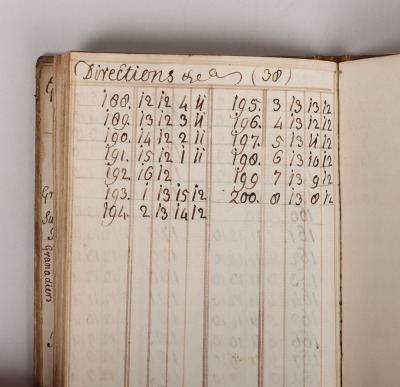 Directions &ca (38)
188. 12 12 4 11 195. 3 13 13 12
189. 13 12 3 11 196. 4 13 12 12
190. 14 12 2 11 197. 5 13 11 12
191. 15 12 1 11 198. 6 13 10 12
192. 16 12 199 7 13 9 12
193. 1 13 15 12 200. 8 13 8 12
194. 2 13 14 12
Granadiers